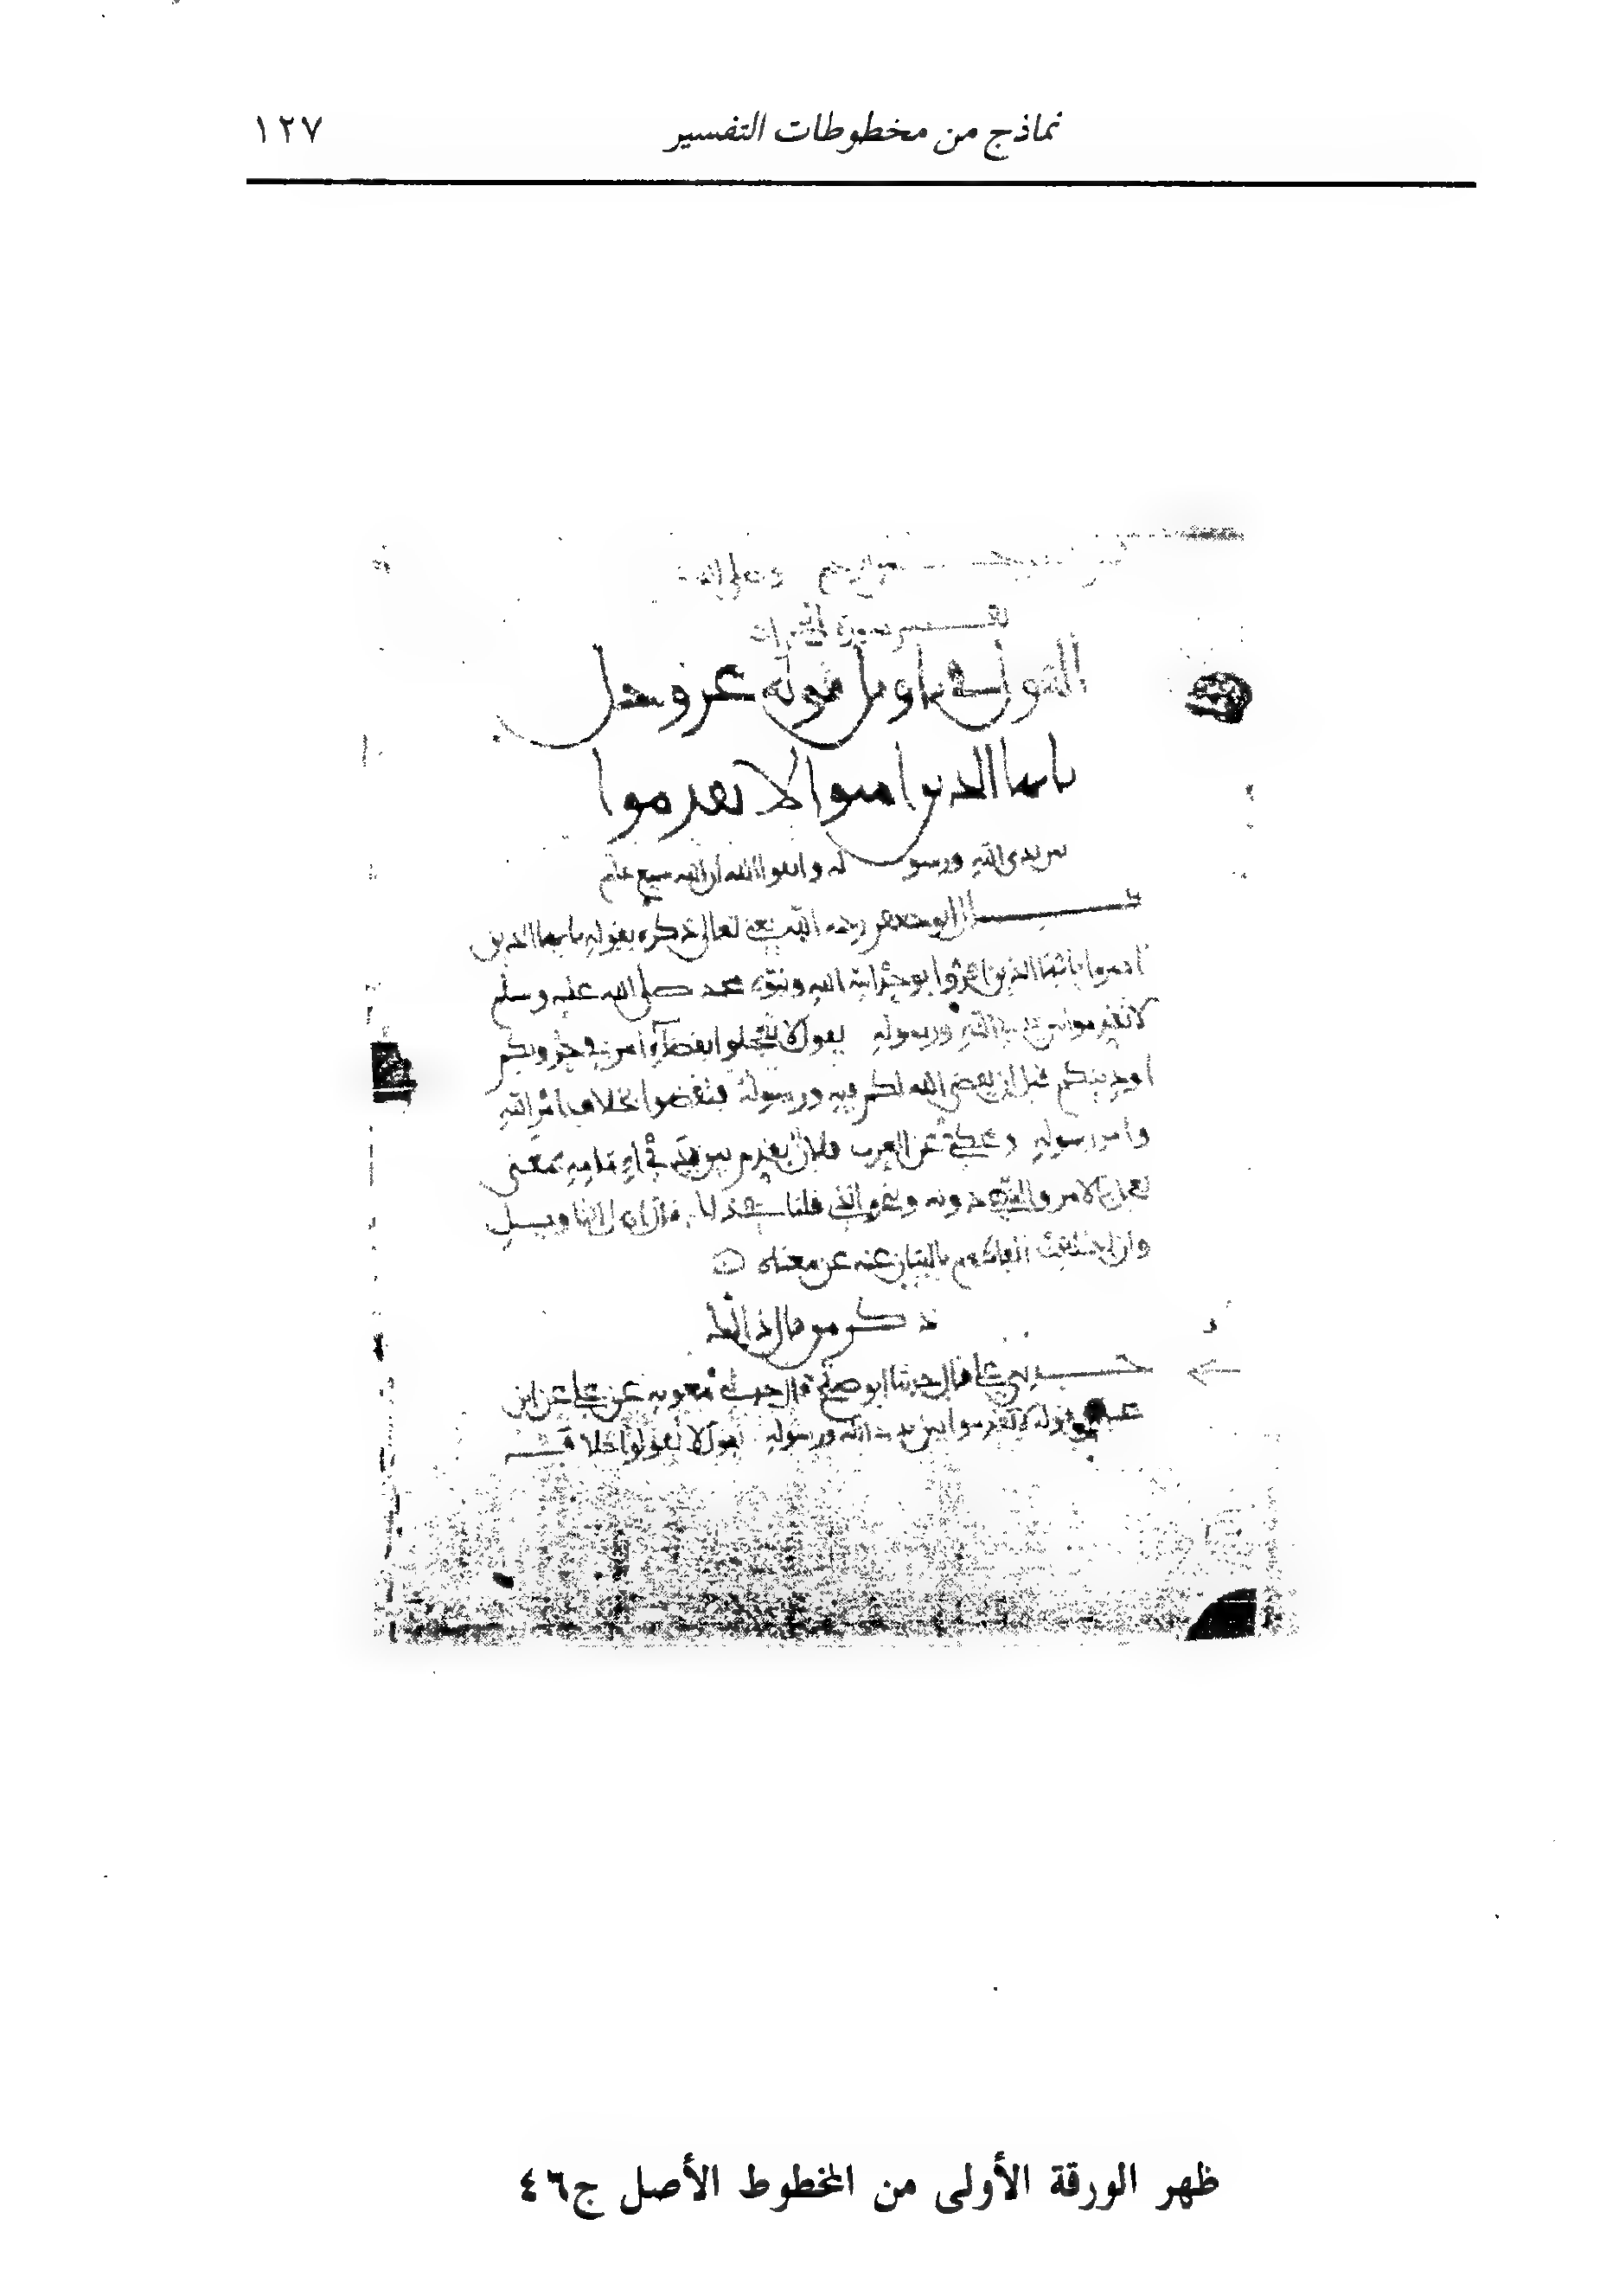 نماذج من مخطوطات التفسير
١٢٧
تفسير سورة الحجرات
القول في تاويل قوله عز وجل
يايها الذين امنوا لا تقدموا
بين يدي الله ورسوله واتقوا الله ان الله سميع عليم
قال ابو جعفر رحمه الله يعني تعالى ذكره بقوله يايها الذين
امنوا يا ايها الذين اقروا بوحدانية الله ونبوة محمد صلى الله عليه وسلم
لا تقدموا بين يدي الله ورسوله يقول لا تعجلوا بقضاء امر في حروبكم
او دينكم قبل ان يقضي الله لكم فيه ورسوله فتقضوا بخلاف امر الله
وامر رسوله محكي عن العرب فلان يقدم بين يدي امامه بمعنى
يعجل بالامر والنهي دونه وبنحو الذي قلنا في ذلك قال اهل التاويل
وان اختلفت الفاظهم بالبيان عنه عن معناه
ذكر من قال ذلك
حدثني علي قال حدثنا ابو صلح قال حدثني معوية عن علي عن ابن
عباس قوله لا تقدموا بين يدي الله ورسوله يقول لا تقولوا خلاف
ظهر الورقة الأولى من المخطوط الأصل ج٤٦